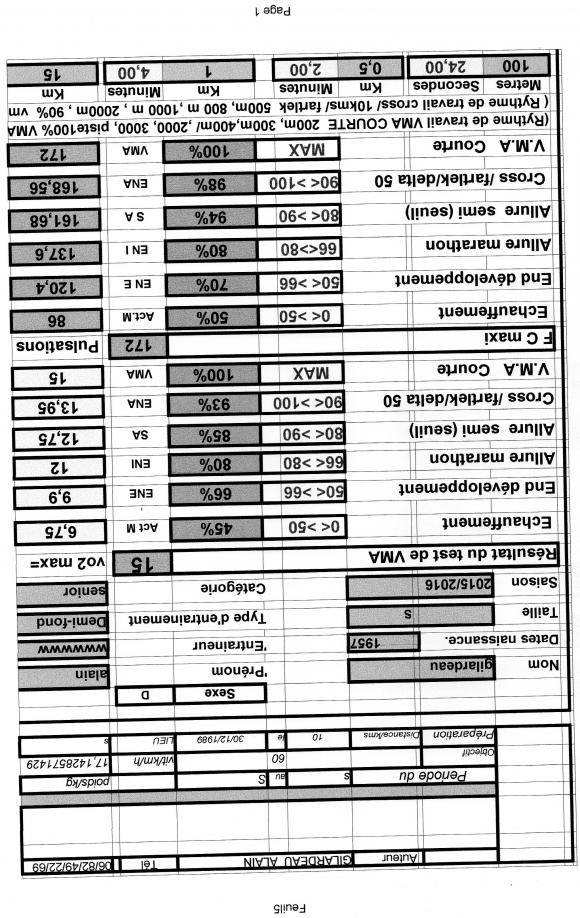 Feuil5
Auteur GILARDEAU ALAIN Tél 06/82/49/22/69
Periode du s au S poids/kg
Objectif 60 vit/km/h 17,1428571429
Préparation Distance/kms 10 le 30/12/1989 LIEU s
Sexe D
Nom gilardeau 'Prénom alain
Dates naissance. 1957 'Entraineur wwwwww
Taille S Type d'entrainement Demi-fond
Saison 2015/2016 Catégorie senior
Résultat du test de VMA 15 vo2 max=
Echauffement 0< >50 45% Act M 6,75
End développement 50< >66 66% ENE 9,9
Allure marathon 66< >80 80% ENI 12
Allure semi (seuil) 80< >90 85% SA 12,75
Cross /fartlek/delta 50 90< >100 93% ENA 13,95
V.M.A Courte MAX 100% VMA 15
F C maxi 172 Pulsations
Echauffement 0< >50 50% Act.M 86
End développement 50< >66 70% EN E 120,4
Allure marathon 66<>80 80% EN I 137,6
Allure semi (seuil) 80< >90 94% S A 161,68
Cross /fartlek/delta 50 90< >100 98% ENA 168,56
V.M.A Courte MAX 100% VMA 172
(Rythme de travail VMA COURTE 200m, 300m,400m/ ,2000, 3000, piste100% VMA
( Rythme de travail cross/ 10kms/ fartlek 500m, 800 m ,1000 m , 2000m , 90% vm
Metres Secondes Km Minutes Km Minutes Km
100 24,00 0,5 2,00 1 4,00 15
Page 1